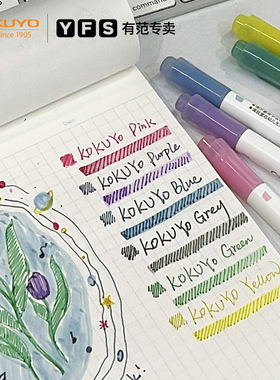 KOKUYO YFS 有范专卖
Since 1905
KOKUYO Pink
KOKUYO Purple
KOKUYO Blue
KOKUYO Grey
KOKUYO Green
KOKUYO Yellow